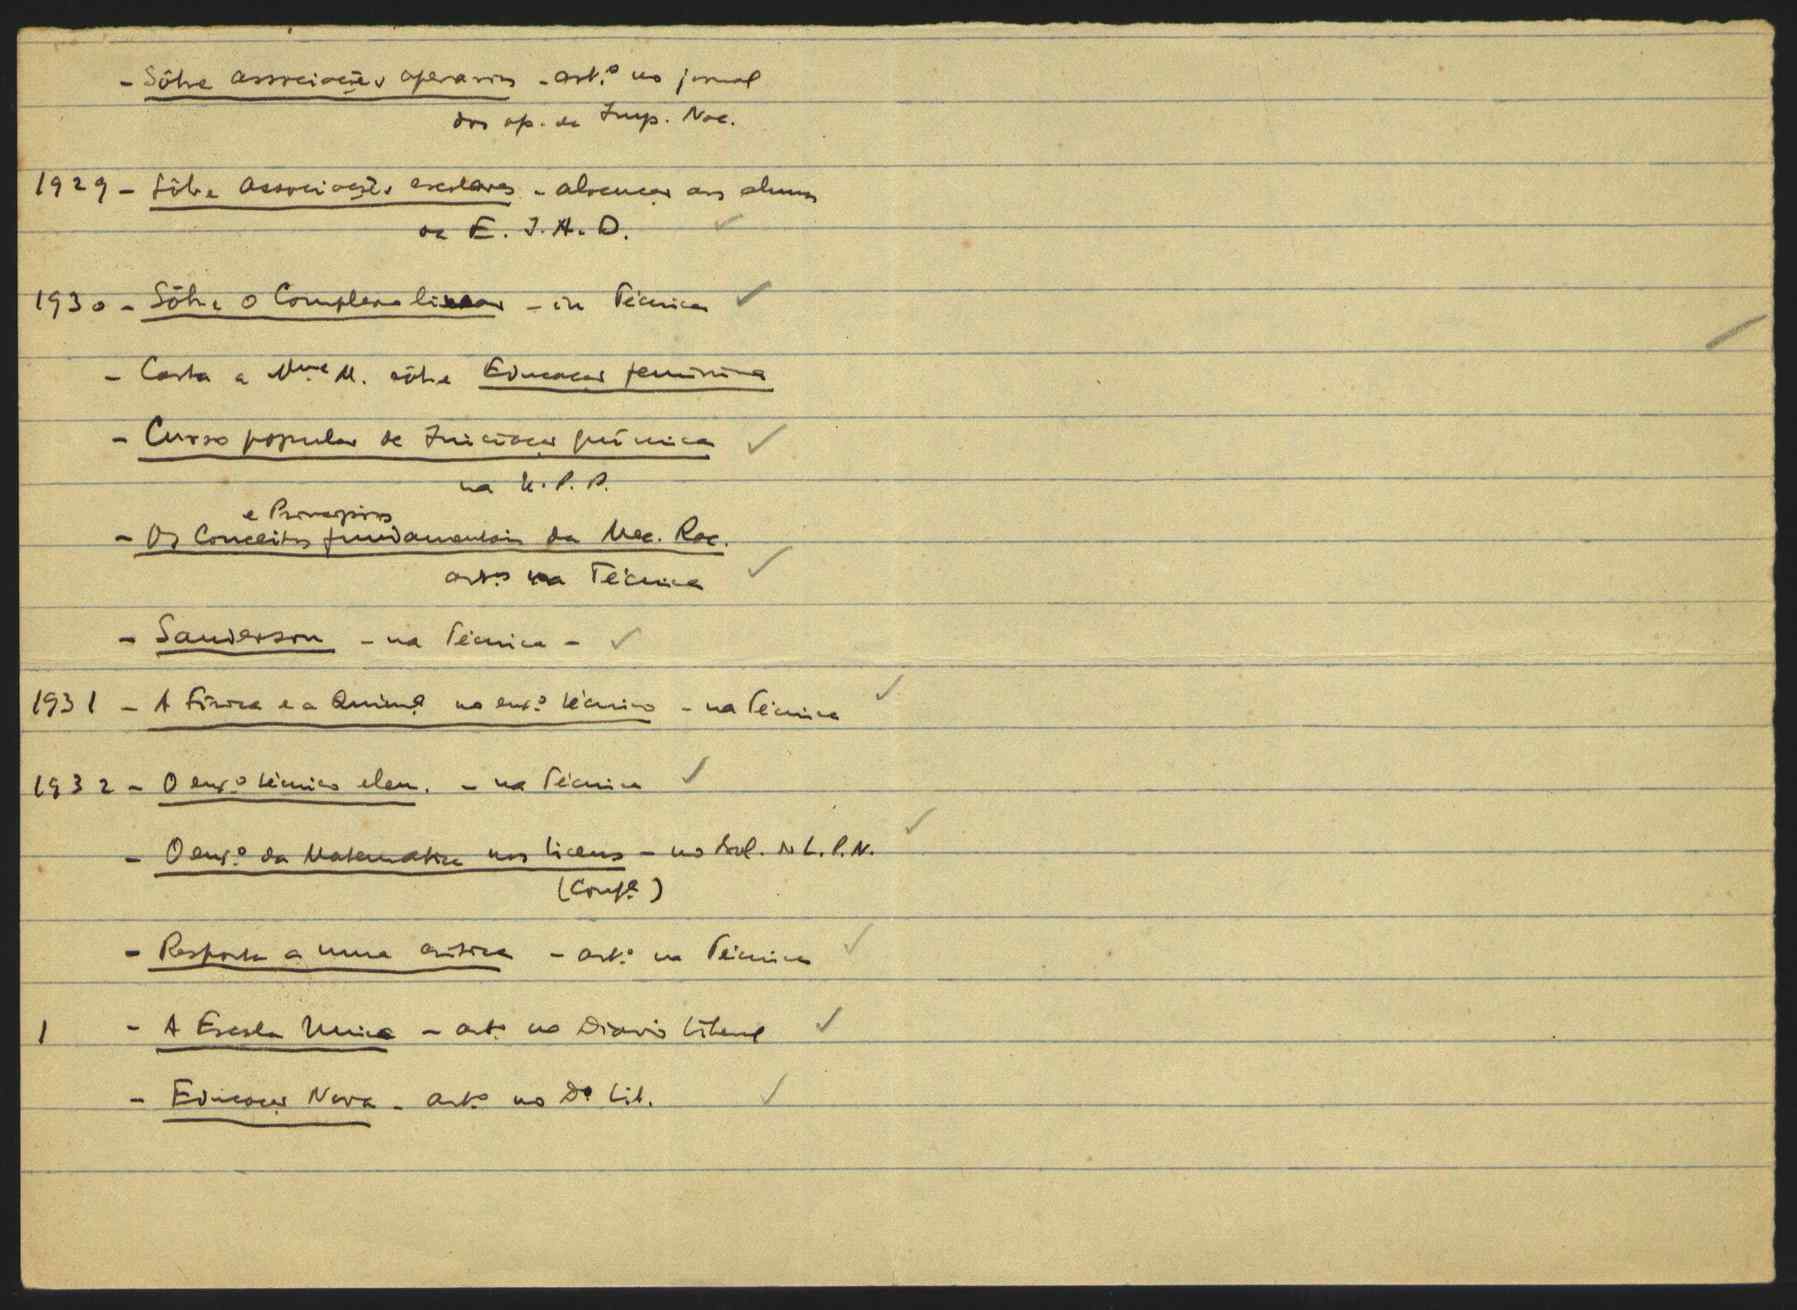 - Sôbre associações operarias - art.º no jornal
dos op. da Imp. Nac.
1929 - Sôbre associações escolares - alocução aos alunos
da E. I. A. D. ✓
1930 - Sôbre o Complexo linear - in Técnica ✓
- Carta a Mme M. sôbre Educação feminina
- Curso popular de Iniciação química ✓
na U. P. P.
e Principios
- Os Conceitos fundamentais da Mec. Rac.
art.os na Técnica ✓
- Sanderson - na Técnica - ✓
1931 - A Física e a Quim.ª no ens.º técnico - na Técnica ✓
1932 - O ens.º técnico elem. - na Técnica ✓
- O ens.º da Matematica nos liceus - no Bol. do L. P. N. ✓
(Conf.ª)
- Resposta a uma crítica - art.º na Técnica ✓
1 - A Escola Unica - art.º no Diario Liberal ✓
- Educação Nova - art.º no D.º Lib. ✓